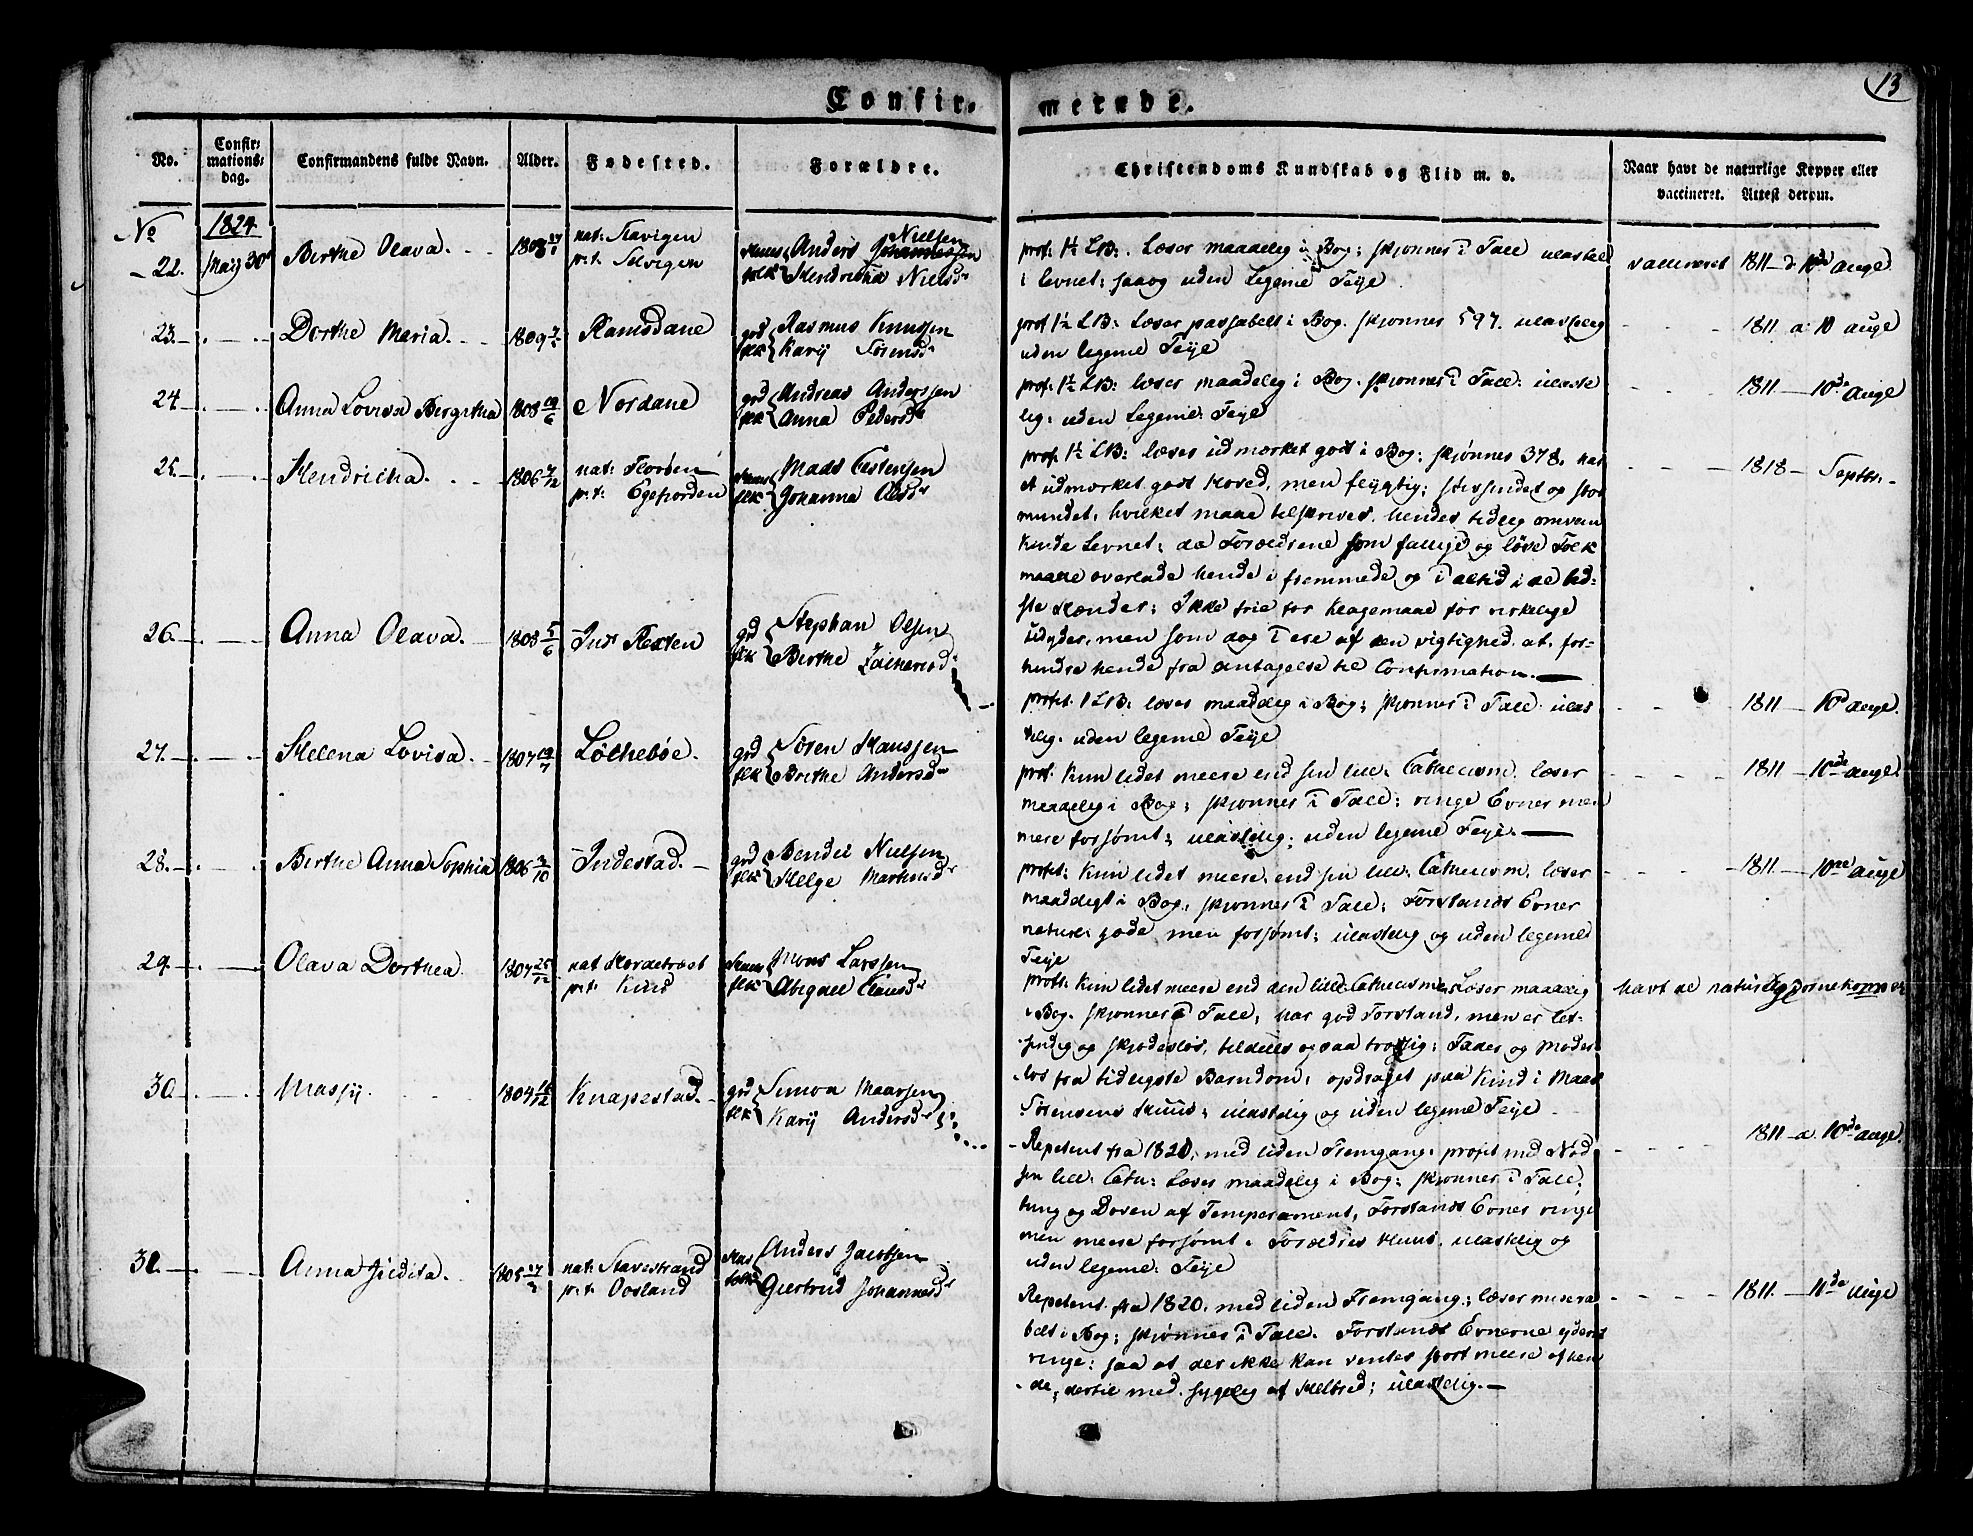 13
Confir- merede.
No.
Confir-
mations-
dag.
Confirmandens fulde Navn.
Alder.
Fødested.
Forældre.
Christendoms Kundskab og Flid m. v.
Naar havt de naturlige Kopper eller
vaccineret. Attest derom.
No 1824
22. Maij 30 Birthe Olava. 1808
nat: Stavigen
p.t. Selvigen
Huus folk Anders Johannessen Nielsen
Hendricha Nielsdr
prof. 1½ LB: Læser maadelig i Bog; skjønner i Tall ulastel
i levnet; saaog uden Legeme Feije.
vaccineret 1811 d 10de Augl.
23. Dorthe Maria. 1809 Ramsdane
grd flk Rasmus Knussen
Karij Sørensdr
prof 1½ LB: Læser passabelt i Bog. skjønner 597. ulastelig
uden legeme Feije
1811 a 10 auge
24 Anna Lovisa Bergitha 1808 19/6 Nordane
grd flk Andreas Anderssen
Anna Pedersdr
prof. 1½ LB: læser maadeleg i Bog. skjønner i Tall: ulaste
lig. uden Legeme Feije
1811 10de Augl
25. Hendricha. 1806 /12
nat: Florøen
p.t. Egefjorden
Huus flk Mads Testensen
Johanna Olsdr
prof. 1½ LB: læser udmærket godt i Bog; skjønner 378. har
et udmærket godt Hoved, men fløgtig; stivsindet og stor
mundet, hvilket maae tilskrives hendes tidlig omvan
kende Levnet; da Forældrene som fattige og løse Folk
maatte overlade hende i fremmede, og i altid i de bed-
ste Hænder; Ikke frie for Klagemaal for virkelige
Udyder, men som dog i ere af den vigtighed at for-
hindre hende fra antagelse til Confirmation.
1818 Septbr.
26. Anna Olava. 1808 5/6 Indr Rexten
grd flk Stephan Olsen
Birthe Zachariasd
profit. 1 LB: læser maadelig i Bog; skjønner i Tall ulas
telig. uden legeme Feije
1811 10de Augl.
27. Helena Lovisa. 1807 19/7 Løthebøe.
grd flk Søren Hanssen
Birthe Andersdr
prof. Kun lidet meere end sin lill. Cathecism. læser
maadelig i Bog; skjønner i Tall; ringe Evner men
mere forsømt; ulastelig; uden legeme Feije.
1811 10de augl.
28. Birthe Anna Sophia 1806 /10 Indestad.
grd flk Bendic Nielsen
Helge Marhusdr
profit: Kun lidet meere end sin lill. Cathecism. læser
maadeligt i Bog. skjønner i Tall; Forstands Evner
naturl: gode men forsømt; ulastelig og uden legeme
Feije
1811. 10ne augl
29. Olava Dorthea. 1807 25/12
nat Hordetræet
p.t. Kind
Huus flk Mons Larssen
Abigael Clausdr
profit: Kun lidet meere end den lille Cathecismus Læser maadelig
i Bog. skjønner i Tall; har god Forstand, men er let-
sindig og skjødesløs, tildeels ogsaa trodsig; Fader og Moder
løs fra tidligste Barndom; opdraget paa Kind i Mads
Sørensens Huus; ulastelig og uden legeme Feije
havt de naturlige Børnekopper
30. Massij. 1804 /12 Knapestad.
grd flk Simon Maarsen
Karij Andersdr
Repetent fra 1820, med liden Fremgang: profit med Nød
sin lill: Cath: Læser maadelig i Bog; skjønner i Tall;
tung og Doven af Temperament, Forstands Evner ringe
men meere forsømt i Forældres Huus, ulastelig og
uden legeme. Feije
1811 a. 10de augl.
31. Anna Judita. 1805
nat: Stavestrand
p.t. Oosland
Huus folk Anders Jacobsen
Giertrud Johannesdr
Repetent fra 1820. med liden Fremgang; læser misera
belt i Bog; skjønner i Tall. Forstands Evnerne yderst
ringe; saa at der ikke kan ventes stort meere af hen
de; dertil med sygelig af Helbred; ulastelig.
1811. 10de Augl